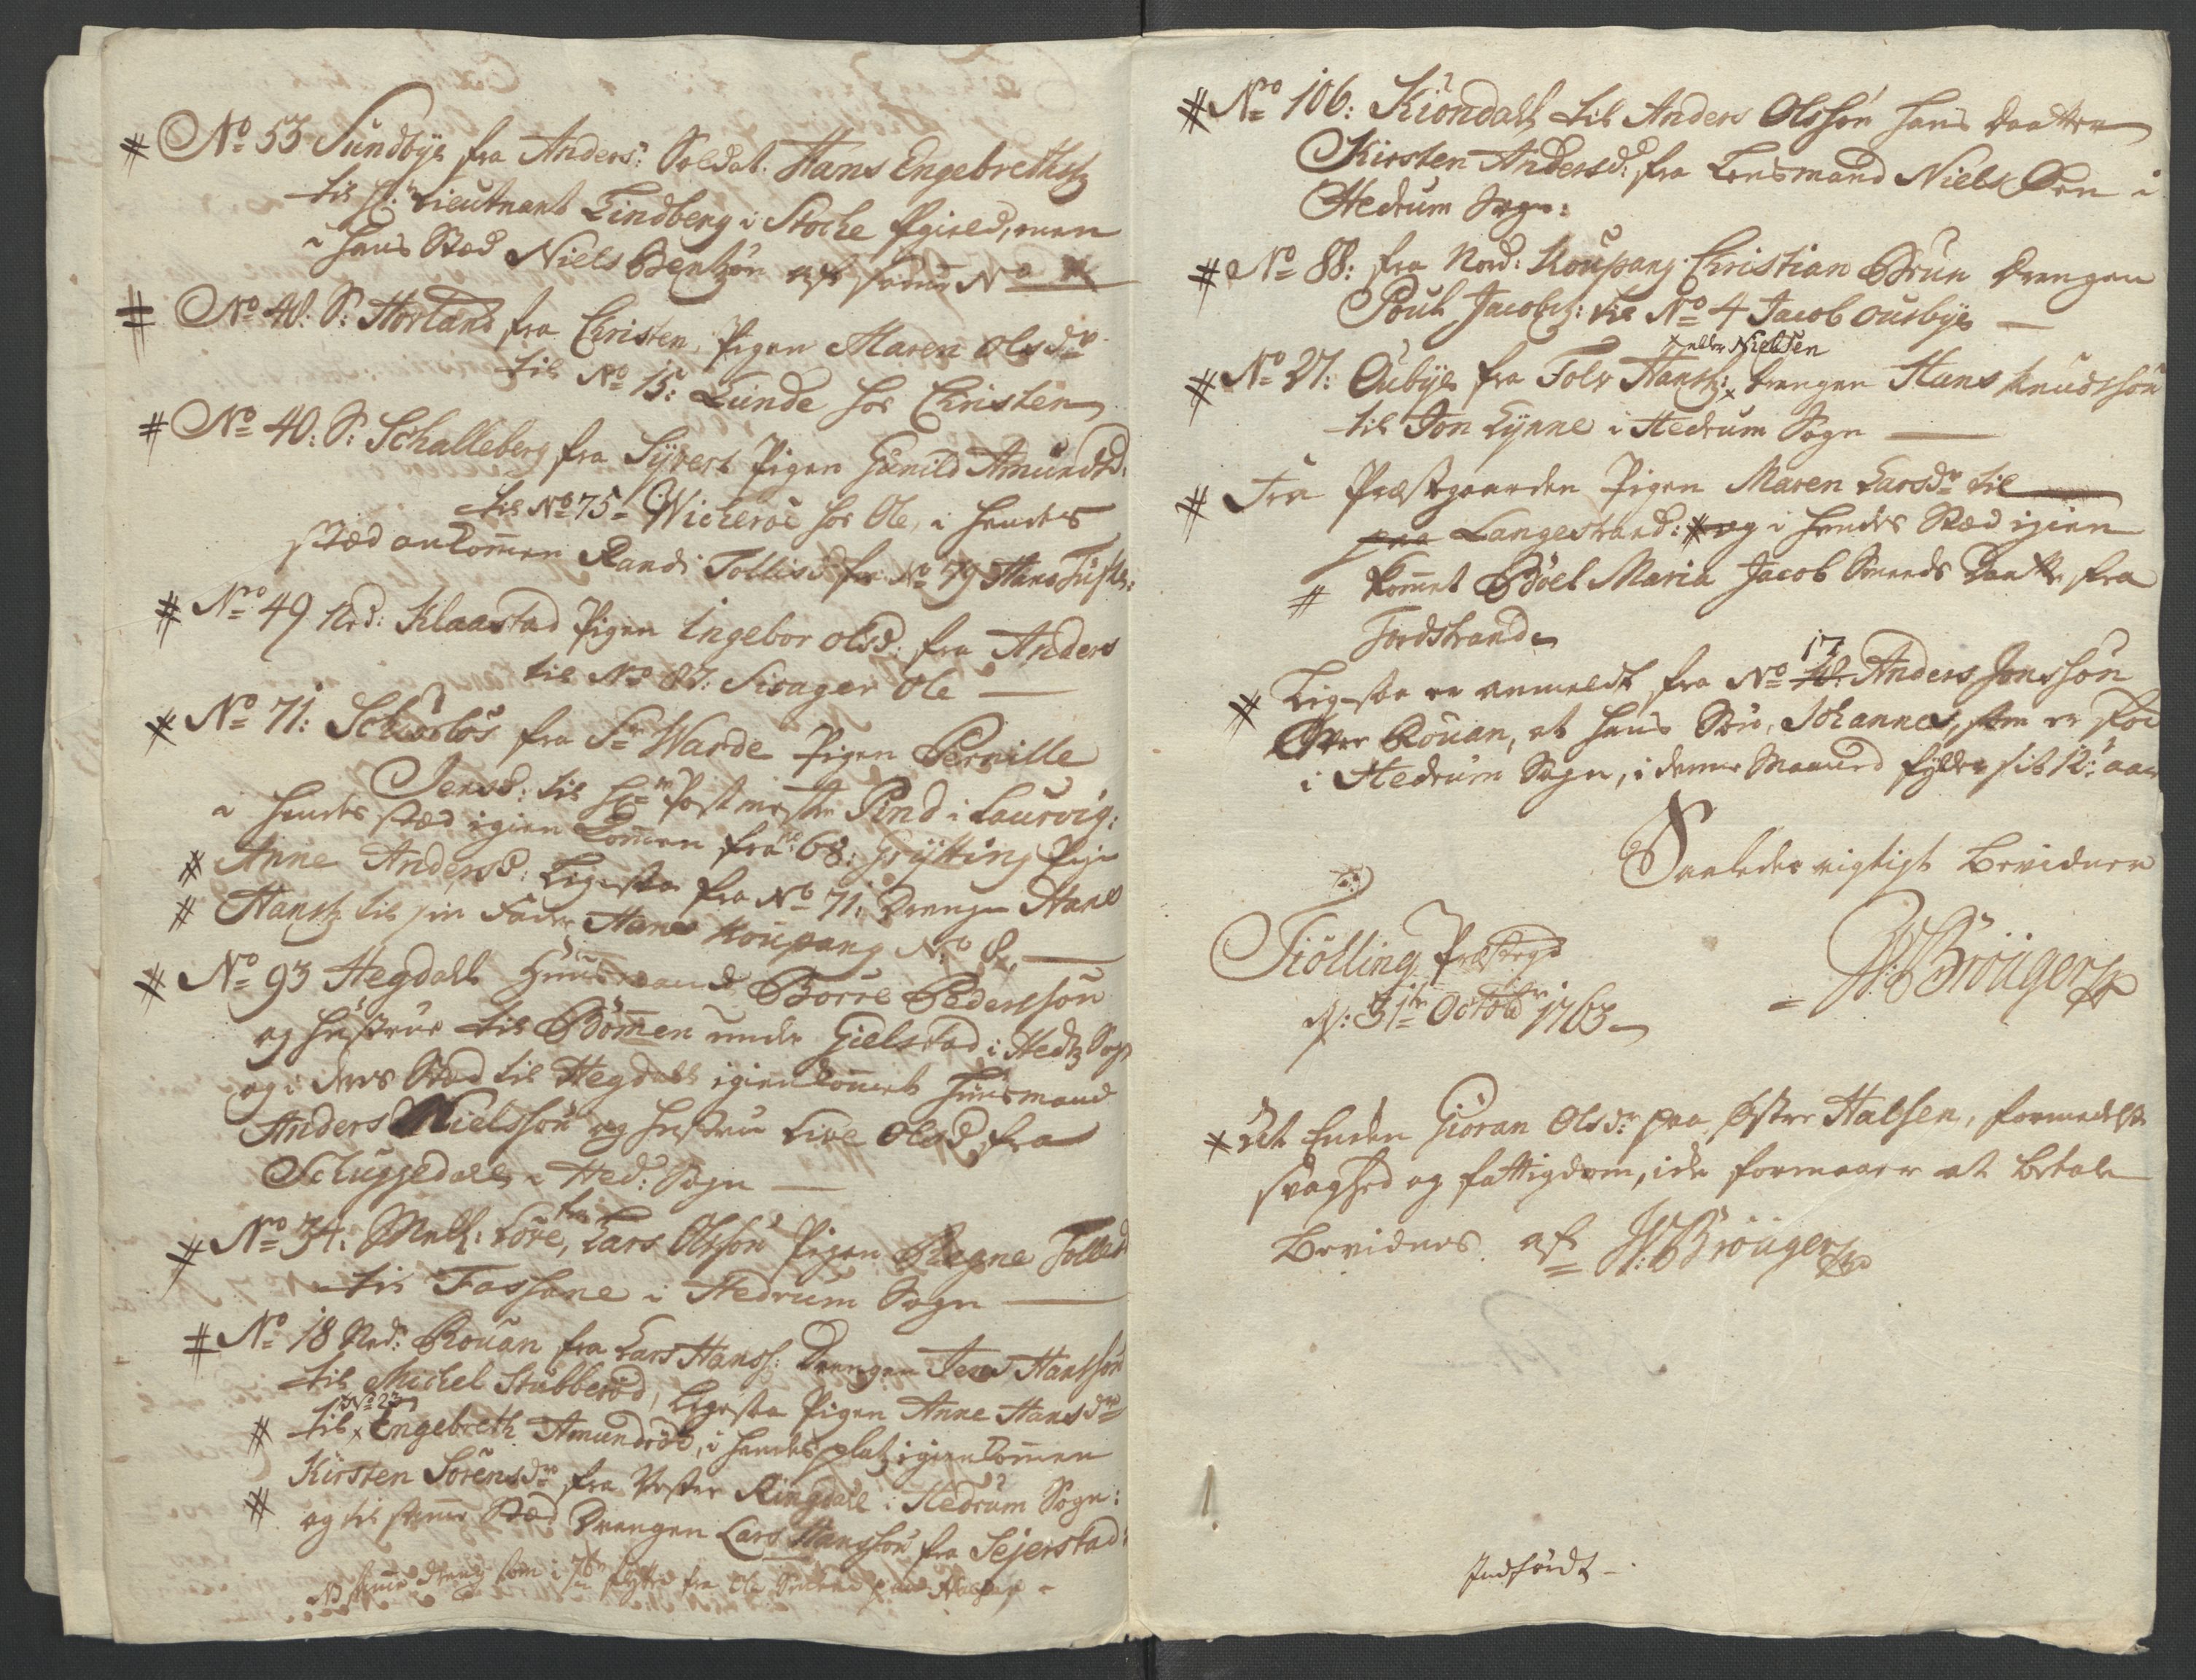 # No 53 Sundbye fra Anders: Soldat. Hans Engebrethsz
til Hr: Lieutnant Lindberg i Stoche Pgield, men
i hans Sted Niels Bentzøn af samme No
# No 48: S: Horland fra Christen, Pigen Maren Olsdr
til No 15: Lunde hos Christen
# No 40: S: Schalleberg fra Syvert Pigen Gunild Amundsd:
til No 75 Wicheroe hos Ole, i hendes
stæd ankommen Randi Tollisd fra No 79 Hans
# No 49 Nrd: Klaastad Pigen Ingebor olsd: fra Anders
til No 87: Sisager Ole —
# No 71: Schisebøs fra Sr Warde Pigen Pernille
Jensd: til Hr Postmester Pind i Laurvig:
i hendes stæd igien kommen fra No 68: Grytting Pige
# Anne Andersd: Ligesaa fra No 71: Drengen Hans
# Hansz til sin Fader Hans Koupang No 8, —
# No 93 Hegdall Huusmand Borre Pedersson
og hustrue til Bommen under Gielstad i Hedz Sogn
og i deres Stæd til Hegdall igien kommet Huusmand
Anders Nielsson og hustru Live Olsd fra
Schuggedall i Hed: Sogn —
# No 34: Mell: Løve, fra Lars Olsson Pigen Regne Tollesd
til Fossane i Hedrum Sogn —
# No 18 Nrd: Rouan fra Lars Hanss: Drengen Jens Hansson
til Michel Stubberød, Ligesaa Pigen Anne Hansdr
# til x No 23 Engebreth Amundrød, i hendes platz igien kommen
Kirsten Sørensdr fra Vester Ringdall i Hedrum Sogn:
# og til samme Stæd Drengen Lars Hansson fra Sejerstad
NB samme dreng som i flytte fra Ole
# No 106: Kiøndall til Anders Olsson hans Daatter
Kirsten Andersd: fra Lensmand Niels Øen i
Hedrum Sogn:
# No 88: fra Nord: Koupang Christian Brun Drengen
Poul Jacobsz: til No 4 Jacob Ousbye —
x eller Nielsen
# No 27: Oubye fra Tolv Hansz: x Drengen Hans Knudsson
til Jon Lynne i Hedrum Sogn —
# Fra Præstgaarden Pigen Maren Larsdr til —
paa Langestrand: # og i hendes Stæd igien
# kommet Bodel Maria Jacob Smeds Daatter fra
Fordstrand
# Ligesaa er anmeldt fra No 17 Anders Jonssøn
Øvre Rouan, at hans Søn, Johannes, som er fød
i Hedrum Sogn, i denne Maaned fylder sit 12te aar
Saaledes rigtigt Bevidner
Tiølling Præstegd
d: 31te Octobr 1763
W: Brøuger
# At Enken Giøran Olsdr paa Østre Halsen, formedelst
svaghed og fattigdom, icke formaaer at betale
Bevidnes af W: Brøuger
Indført